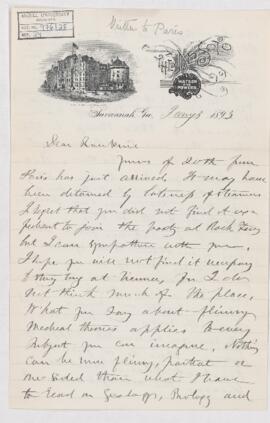 McGILL UNIVERSITY
ARCHIVES
ACC. NO.
REF.
Written to Paris
HOTEL
WATSON & POWERS
Savannah, Ga. Jany 3 1893
Dear Rankine
Yours of 20th from
Paris has just arrived. It may have
been detained by lateness of steamers
I regret that you did not find it
to join the party at Rock Ferry
but I can sympathise with you.
I hope you will not find it necessary
to stay long at Vienna, for I do
not think much of the place,
What you say about flimsy
Medical theories applies to every
subject you can imagine. Nothing
can be more flimsy, partial or
one sided than what I have
to read on Geology, Biology and